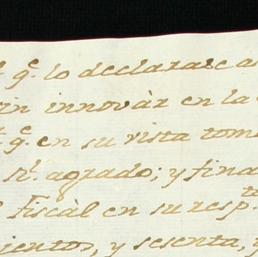 q.e lo declarase a
in innovàr en la
q.e en su vista tome
sr. agrado; y fina
Fiscàl en su resp.ta
ientos, y sesenta, y